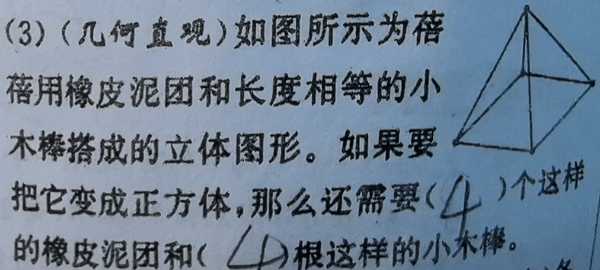 (3)(几何直观)如图所示为蓓
蓓用橡皮泥团和长度相等的小
木棒搭成的立体图形。如果要
把它变成正方体,那么还需要(4)个这样
的橡皮泥团和(4)根这样的小木棒。